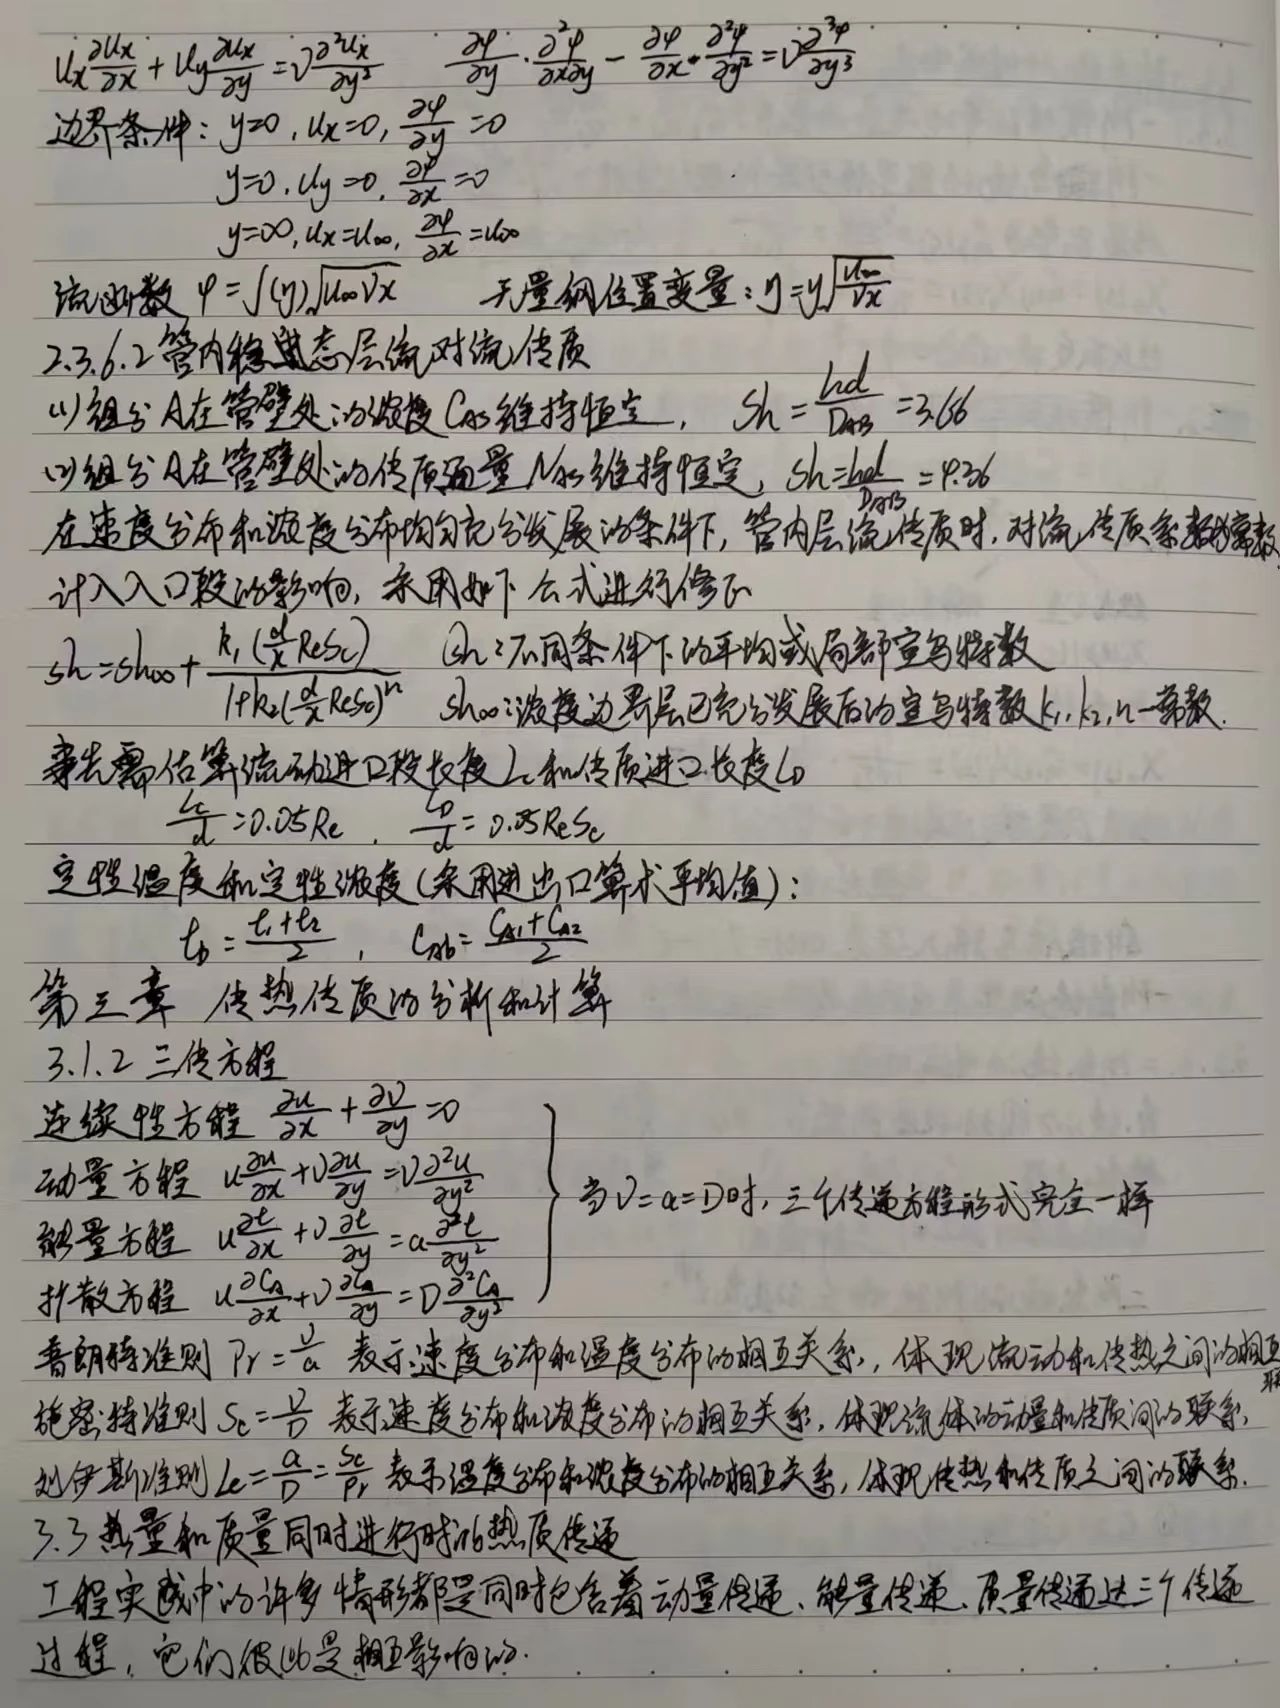 Ux ∂Ux/∂x + Uy ∂Ux/∂y = ν ∂²Ux/∂y²   ∂ψ/∂y · ∂²ψ/∂x∂y − ∂ψ/∂x · ∂²ψ/∂y² = ν ∂³ψ/∂y³
边界条件: y=0, Ux=0, ∂ψ/∂y =0
y=0, Uy=0, ∂ψ/∂x =0
y=∞, Ux=U∞, ∂ψ/∂x =U∞
流函数 ψ=f(η)√(U∞νx)   无量纲位置变量: η=y√(U∞/νx)
2.3.6.2 管内稳态层流对流传质
(1) 组分A在管壁处的浓度CAs维持恒定, Sh = hd/DAB =3.66
(2) 组分A在管壁处的传质通量NAs维持恒定, Sh=hd/DAB =4.36
在速度分布和浓度分布均匀充分发展的条件下, 管内层流传质时, 对流传质系数为常数
计入入口段的影响, 采用如下公式进行修正
Sh=Sh∞+ k₁(d/x ReSc)/(1+k₂(d/x ReSc)ⁿ)   Sh:不同条件下的平均或局部宣乌特数
Sh∞:浓度边界层已充分发展后的宣乌特数 k₁, k₂, n—常数.
事先需估算流动进口段长度Lc和传质进口长度LD
Lc/d =0.05Re, LD/d = 0.05ReSc
定性温度和定性浓度(采用进出口算术平均值):
tb = (t₁+t₂)/2, CAb= (CA1+CA2)/2
第三章 传热传质的分析和计算
3.1.2 三传方程
连续性方程 ∂u/∂x + ∂ν/∂y =0
动量方程 u∂u/∂x +ν∂u/∂y =ν∂²u/∂y²
能量方程 u∂t/∂x +ν∂t/∂y =a∂²t/∂y²   当ν=a=D时, 三个传递方程形式完全一样
扩散方程 u∂CA/∂x +ν∂CA/∂y =D∂²CA/∂y²
普朗特准则 Pr=ν/a 表示速度分布和温度分布的相互关系, 体现流动和传热之间的相互联
施密特准则 Sc=ν/D 表示速度分布和浓度分布的相互关系, 体现流体的动量和传质间的联系,
刘伊斯准则 Le=a/D=Sc/Pr 表示温度分布和浓度分布的相互关系, 体现传热和传质之间的联系.
3.3 热量和质量同时进行时的热质传递
工程实践中的许多情形都是同时包含着动量传递、能量传递、质量传递这三个传递
过程, 它们彼此是相互影响的.